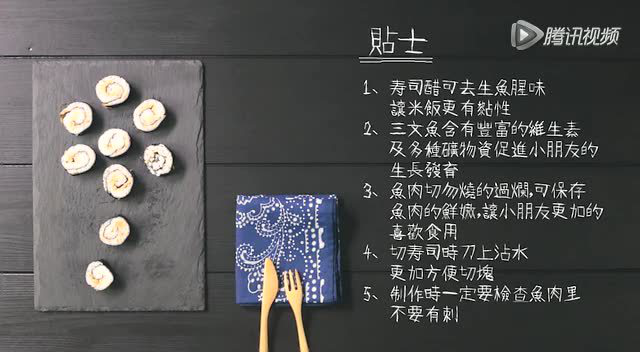 腾讯视频
貼士
1、寿司醋可去生魚腥味
讓米飯更有黏性
2、三文魚含有豐富的維生素
及多種礦物資促進小朋友的
生長發育
3、魚肉切勿燒的過爛,可保存
魚肉的鮮嫩,讓小朋友更加的
喜歡食用
4、切寿司時刀上沾水
更加方便切塊
5、制作時一定要檢查魚肉里
不要有刺